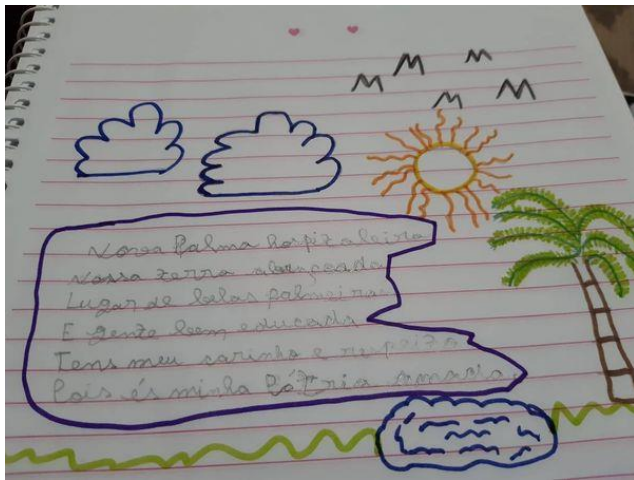 Nova Palma hospitaleira
Nossa terra abençoada
Lugar de belas palmeiras
E gente bem educada
Tens meu carinho e respeito
Pois és minha Pátria Amada.